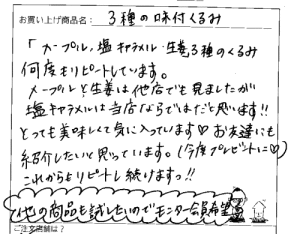 お買い上げ商品名： 3種の味付くるみ
「メープル，塩キャラメル・生姜3種のくるみ
何度もリピートしています。
メープルと生姜は他店でも見ましたが
塩キャラメルは当店ならではだと思います!!
とっても美味しくて気に入っています♡お友達にも
紹介したいと思っています。(今度プレゼントに♡)
これからもリピートし続けますっ!!
他の商品も試したいのでモニター会員希望
ご注文店舗は？